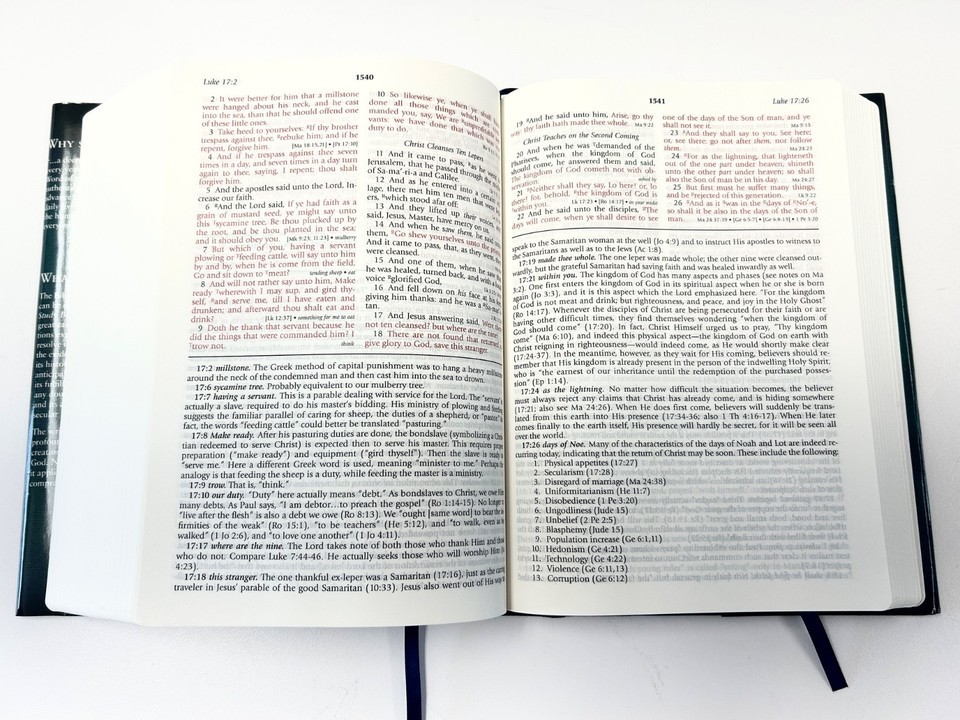 Luke 17:2
1540
2 It were better for him that a millstone
were hanged about his neck, and he cast
into the sea, than that he should offend one
of these little ones.
3 Take heed to yourselves: If thy brother
trespass against thee, rebuke him; and if he
repent, forgive him. [Ma 18:15,21] • [Ps 17:30]
4 And if he trespass against thee seven
times in a day, and seven times in a day turn
again to thee, saying, I repent; thou shalt
forgive him.
5 And the apostles said unto the Lord, In-
crease our faith.
6 And the Lord said, If ye had faith as a
grain of mustard seed, ye might say unto
this sycamine tree, Be thou plucked up by
the root, and be thou planted in the sea;
and it should obey you. [Mk 9:23; 11:23] • mulberry
7 But which of you, having a servant
plowing or feeding cattle, will say unto him
by and by, when he is come from the field,
Go and sit down to meat? tending sheep • eat
8 And will not rather say unto him, Make
ready wherewith I may sup, and gird thy-
self, and serve me, till I have eaten and
drunken; and afterward thou shalt eat and
drink? [Lk 12:37] • something for me to eat
9 Doth he thank that servant because he
did the things that were commanded him? I
trow not. think
10 So likewise ye, when ye shall
done all those things which are
manded you, say, We are
vants: we have done that which
duty to do.
Christ Cleanses Ten Lepers
11 And it came to pass, as he went
Jerusalem, that he passed through the
of Sa-ma'-ri-a and Galilee.
12 And as he entered into a certain
lage, there met him ten men that were
ers, which stood afar off:
13 And they lifted up their voices,
said, Jesus, Master, have mercy on us.
14 And when he saw them, he said unto
them, Go shew yourselves unto the
And it came to pass, that, as they went,
were cleansed.
15 And one of them, when he saw
he was healed, turned back, and with a
voice glorified God,
16 And fell down on his face at his
giving him thanks: and he was a
tan.
17 And Jesus answering said, Were
not ten cleansed? but where are the
18 There are not found that returned
give glory to God, save this stranger.
17:2 millstone. The Greek method of capital punishment was to hang a heavy millstone
around the neck of the condemned man and then cast him into the sea to drown.
17:6 sycamine tree. Probably equivalent to our mulberry tree.
17:7 having a servant. This is a parable dealing with service for the Lord. The "servant"
actually a slave, required to do his master's bidding. His ministry of plowing and feeding
suggests the familiar parallel of caring for sheep, the duties of a shepherd, or "pastor"
fact, the words "feeding cattle" could better be translated "pasturing."
17:8 Make ready. After his pasturing duties are done, the bondslave (symbolizing a Chris-
tian redeemed to serve Christ) is expected then to serve his master. This requires
preparation ("make ready") and equipment ("gird thyself"). Then the slave is ready to
"serve me." Here a different Greek word is used, meaning "minister to me." Perhaps the
analogy is that feeding the sheep is a duty, while feeding the master is a ministry.
17:9 trow. That is, "think."
17:10 our duty. "Duty" here actually means "debt." As bondslaves to Christ, we owe Him
many debts. As Paul says, "I am debtor...to preach the gospel" (Ro 1:14-15). No longer to
"live after the flesh" is also a debt we owe (Ro 8:13). We "ought [same word] to bear the in-
firmities of the weak" (Ro 15:1), "to be teachers" (He 5:12), and "to walk, even as he
walked" (1 Jo 2:6), and "to love one another" (1 Jo 4:11).
17:17 where are the nine. The Lord takes note of both those who thank Him and those
who do not. Compare Luke 7:44-46. He actually seeks those who will worship Him (Jo
4:23).
17:18 this stranger. The one thankful ex-leper was a Samaritan (17:16), just as the caring
traveler in Jesus' parable of the good Samaritan (10:33). Jesus also went out of His way to
1541
Luke 17:26
19 And he said unto him, Arise, go thy
way: thy faith hath made thee whole. Ma 9:22
Christ Teaches on the Second Coming
20 And when he was demanded of the
Pharisees, when the kingdom of God
should come, he answered them and said,
The kingdom of God cometh not with ob-
servation: asked by
21 Neither shall they say, Lo here! or, lo
there! for, behold, the kingdom of God is
within you. Lk 17:23 • [Ro 14:17] • in your midst
22 And he said unto the disciples, The
days will come, when ye shall desire to see
one of the days of the Son of man, and ye
shall not see it. Ma 9:15
23 And they shall say to you, See here;
or, see there: go not after them, nor follow
them. Ma 24:23
24 For as the lightning, that lighteneth
out of the one part under heaven, shineth
unto the other part under heaven; so shall
also the Son of man be in his day. Ma 24:27
25 But first must he suffer many things,
and be rejected of this generation. Lk 9:22
26 And as it was in the days of No'-e,
so shall it be also in the days of the Son of
man. Ma 24:37-39 • [Ge 6:5-7] • [Ge 6:8-13] • 1 Pe 3:20
speak to the Samaritan woman at the well (Jo 4:9) and to instruct His apostles to witness to
the Samaritans as well as to the Jews (Ac 1:8).
17:19 made thee whole. The one leper was made whole; the other nine were cleansed out-
wardly, but the grateful Samaritan had saving faith and was healed inwardly as well.
17:21 within you. The kingdom of God has many aspects and phases (see notes on Ma
3:2). One first enters the kingdom of God in its spiritual aspect when he or she is born
again (Jo 3:3), and it is this aspect which the Lord emphasized here. "For the kingdom
of God is not meat and drink; but righteousness, and peace, and joy in the Holy Ghost"
(Ro 14:17). Whenever the disciples of Christ are being persecuted for their faith or are
having other difficult times, they find themselves wondering "when the kingdom of
God should come" (17:20). In fact, Christ Himself urged us to pray, "Thy kingdom
come" (Ma 6:10), and indeed this physical aspect—the kingdom of God on earth with
Christ reigning in righteousness—would indeed come, as He would shortly make clear
(17:24-37). In the meantime, however, as they wait for His coming, believers should re-
member that His kingdom is already present in the person of the indwelling Holy Spirit,
who is "the earnest of our inheritance until the redemption of the purchased posses-
sion" (Ep 1:14).
17:24 as the lightning. No matter how difficult the situation becomes, the believer
must always reject any claims that Christ has already come, and is hiding somewhere
(17:21; also see Ma 24:26). When He does first come, believers will suddenly be trans-
lated from this earth into His presence (17:34-36; also 1 Th 4:16-17). When He later
comes finally to the earth itself, His presence will hardly be secret, for it will be seen all
over the world.
17:26 days of Noe. Many of the characteristics of the days of Noah and Lot are indeed re-
curring today, indicating that the return of Christ may be soon. These include the following:
1. Physical appetites (17:27)
2. Secularism (17:28)
3. Disregard of marriage (Ma 24:38)
4. Uniformitarianism (He 11:7)
5. Disobedience (1 Pe 3:20)
6. Ungodliness (Jude 15)
7. Unbelief (2 Pe 2:5)
8. Blasphemy (Jude 15)
9. Population increase (Ge 6:1,11)
10. Hedonism (Ge 4:21)
11. Technology (Ge 4:22)
12. Violence (Ge 6:11,13)
13. Corruption (Ge 6:12)